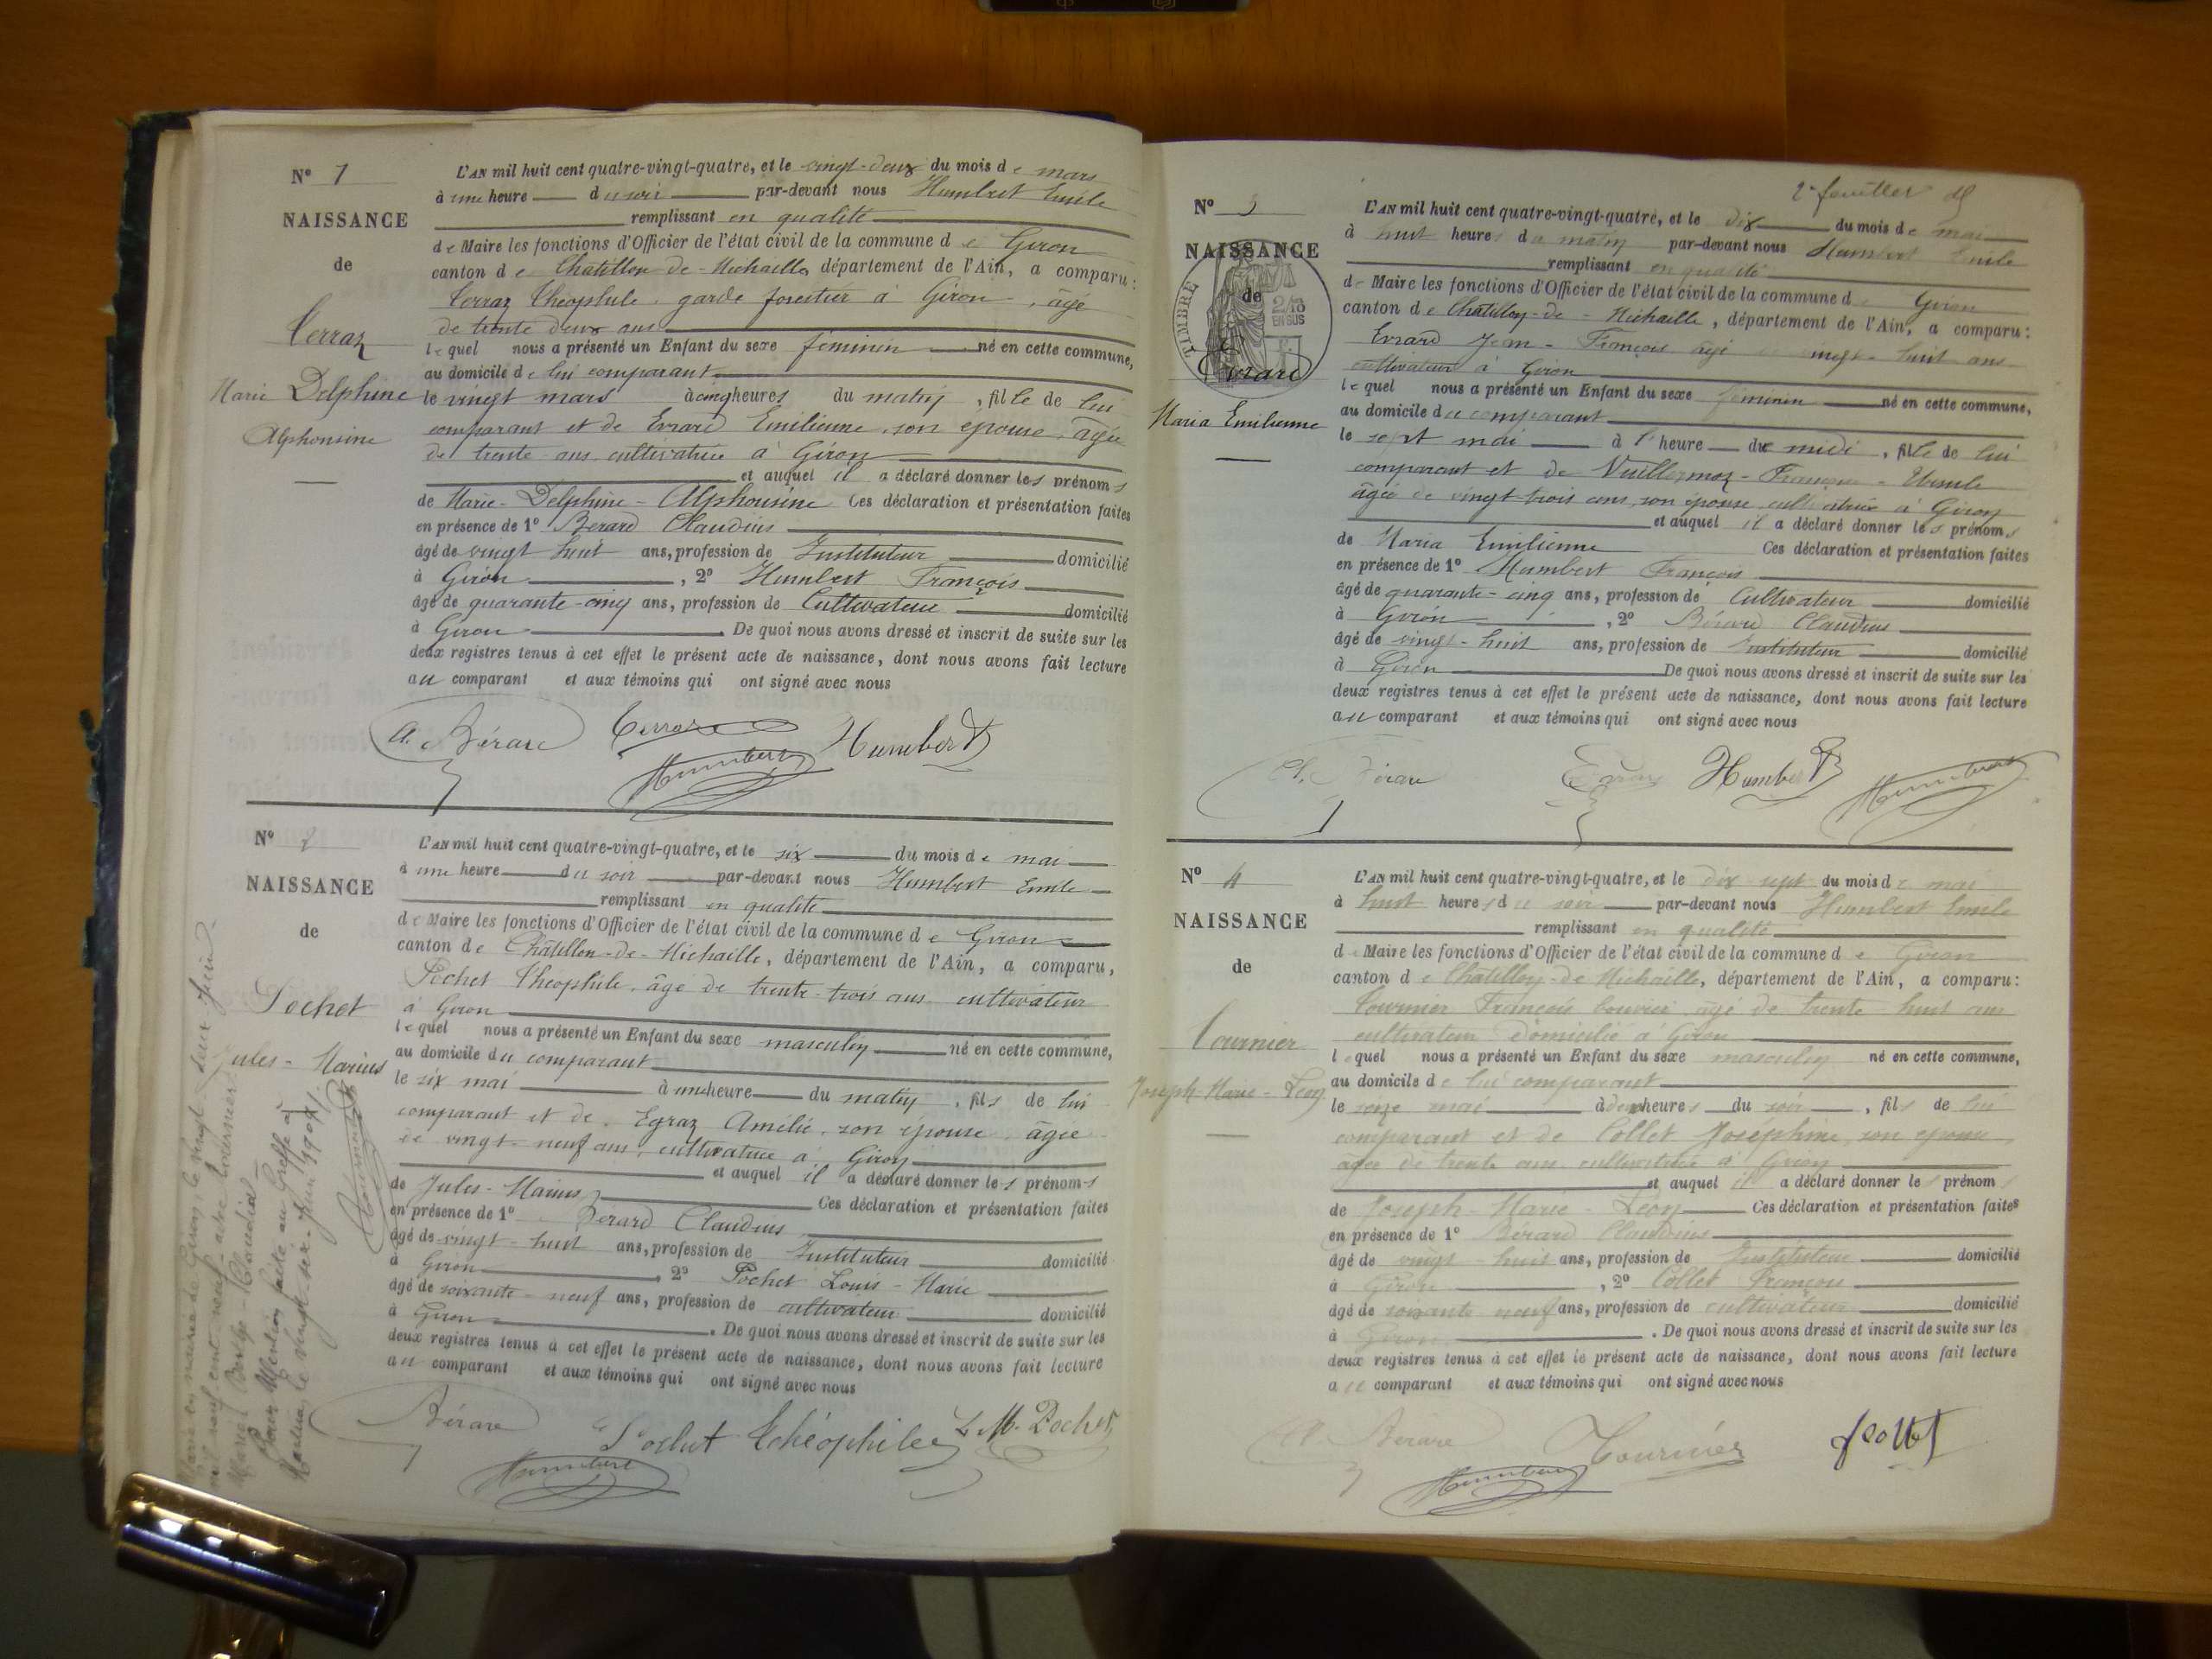 N° 1
NAISSANCE
de
Terraz
Marie Delphine
Alphonsine
L'AN mil huit cent quatre-vingt-quatre, et le vingt-deux du mois de mars
à une heure du soir par-devant nous Humbert Emile
remplissant en qualité
de Maire les fonctions d'Officier de l'état civil de la commune de Giron
canton de Châtillon-de-Michaille, département de l'Ain, a comparu:
Terraz Théophile, garde forestier à Giron, âgé
de trente deux ans
lequel nous a présenté un Enfant du sexe féminin né en cette commune,
au domicile de lui comparant
le vingt mars à cinq heures du matin, fille de lui
comparant et de Evrard Emilienne son épouse âgée
de trente ans cultivatrice à Giron
et auquel il a déclaré donner les prénoms
de Marie-Delphine-Alphonsine Ces déclaration et présentation faites
en présence de 1° Bérard Claudius
âgé de vingt huit ans, profession de Instituteur domicilié
à Giron, 2° Humbert François
âgé de quarante-cinq ans, profession de Cultivateur domicilié
à Giron. De quoi nous avons dressé et inscrit de suite sur les
deux registres tenus à cet effet le présent acte de naissance, dont nous avons fait lecture
au comparant et aux témoins qui ont signé avec nous
Cl. Bérard Terraz Humbert
Humbert
N° 2
NAISSANCE
de
Pochet
Jules-Marius
L'AN mil huit cent quatre-vingt-quatre, et le six du mois de mai
à une heure du soir par-devant nous Humbert Emile
remplissant en qualité
de Maire les fonctions d'Officier de l'état civil de la commune de Giron
canton de Châtillon-de-Michaille, département de l'Ain, a comparu,
Pochet Théophile, âgé de trente-trois ans cultivateur
à Giron
lequel nous a présenté un Enfant du sexe masculin né en cette commune,
au domicile du comparant
le six mai à une heure du matin, fils de lui
comparant et de Egraz Amélie, son épouse, âgée
de vingt-neuf ans, cultivatrice à Giron
et auquel il a déclaré donner les prénoms
de Jules-Marius Ces déclaration et présentation faites
en présence de 1° Bérard Claudius
âgé de vingt-huit ans, profession de Instituteur domicilié
à Giron, 2° Pochet Louis-Marie
âgé de soixante-neuf ans, profession de cultivateur domicilié
à Giron. De quoi nous avons dressé et inscrit de suite sur les
deux registres tenus à cet effet le présent acte de naissance, dont nous avons fait lecture
au comparant et aux témoins qui ont signé avec nous
Bérard Pochet Théophile L. M. Pochet
Humbert
Marié en mairie de Giron le vingt-deux Juin
mil neuf cent neuf avec Tournier
Marie Berthe-Claudia
Pour Mention faite au Greffe à
Nantua, le vingt-six Juin 1909
2e feuillet
N° 3
NAISSANCE
de
TIMBRE
Evrard
Maria Emilienne
L'AN mil huit cent quatre-vingt-quatre, et le dix du mois de mai
à huit heures du matin par-devant nous Humbert Emile
remplissant en qualité
de Maire les fonctions d'Officier de l'état civil de la commune de Giron
canton de Châtillon-de-Michaille, département de l'Ain, a comparu:
Evrard Jean-François âgé de vingt-huit ans
cultivateur à Giron
lequel nous a présenté un Enfant du sexe féminin né en cette commune,
au domicile du comparant
le sept mai à 1 heure du midi, fille de lui
comparant et de Vuillermoz-Françoise-Ursule
âgée de vingt-trois ans, son épouse cultivatrice à Giron
et auquel il a déclaré donner les prénoms
de Maria Emilienne Ces déclaration et présentation faites
en présence de 1° Humbert François
âgé de quarante-cinq ans, profession de Cultivateur domicilié
à Giron, 2° Bérard Claudius
âgé de vingt-huit ans, profession de Instituteur domicilié
à Giron De quoi nous avons dressé et inscrit de suite sur les
deux registres tenus à cet effet le présent acte de naissance, dont nous avons fait lecture
au comparant et aux témoins qui ont signé avec nous
Cl. Bérard Evrard Humbert Humbert
N° 4
NAISSANCE
de
Tournier
Joseph-Marie-Léon
L'AN mil huit cent quatre-vingt-quatre, et le dix sept du mois de mai
à huit heures du soir par-devant nous Humbert Emile
remplissant en qualité
de Maire les fonctions d'Officier de l'état civil de la commune de Giron
canton de Châtillon-de-Michaille, département de l'Ain, a comparu:
Tournier François âgé de trente huit ans
cultivateur domicilié à Giron
lequel nous a présenté un Enfant du sexe masculin né en cette commune,
au domicile de lui comparant
le seize mai à deux heures du soir, fils de lui
comparant et de Collet Joséphine, son épouse
âgée de trente ans cultivatrice à Giron
et auquel il a déclaré donner les prénoms
de Joseph-Marie-Léon Ces déclaration et présentation faites
en présence de 1° Bérard Claudius
âgé de vingt-huit ans, profession de Instituteur domicilié
à Giron, 2° Collet François
âgé de soixante neuf ans, profession de cultivateur domicilié
à Giron. De quoi nous avons dressé et inscrit de suite sur les
deux registres tenus à cet effet le présent acte de naissance, dont nous avons fait lecture
au comparant et aux témoins qui ont signé avec nous
Cl. Bérard Tournier f collet
Humbert